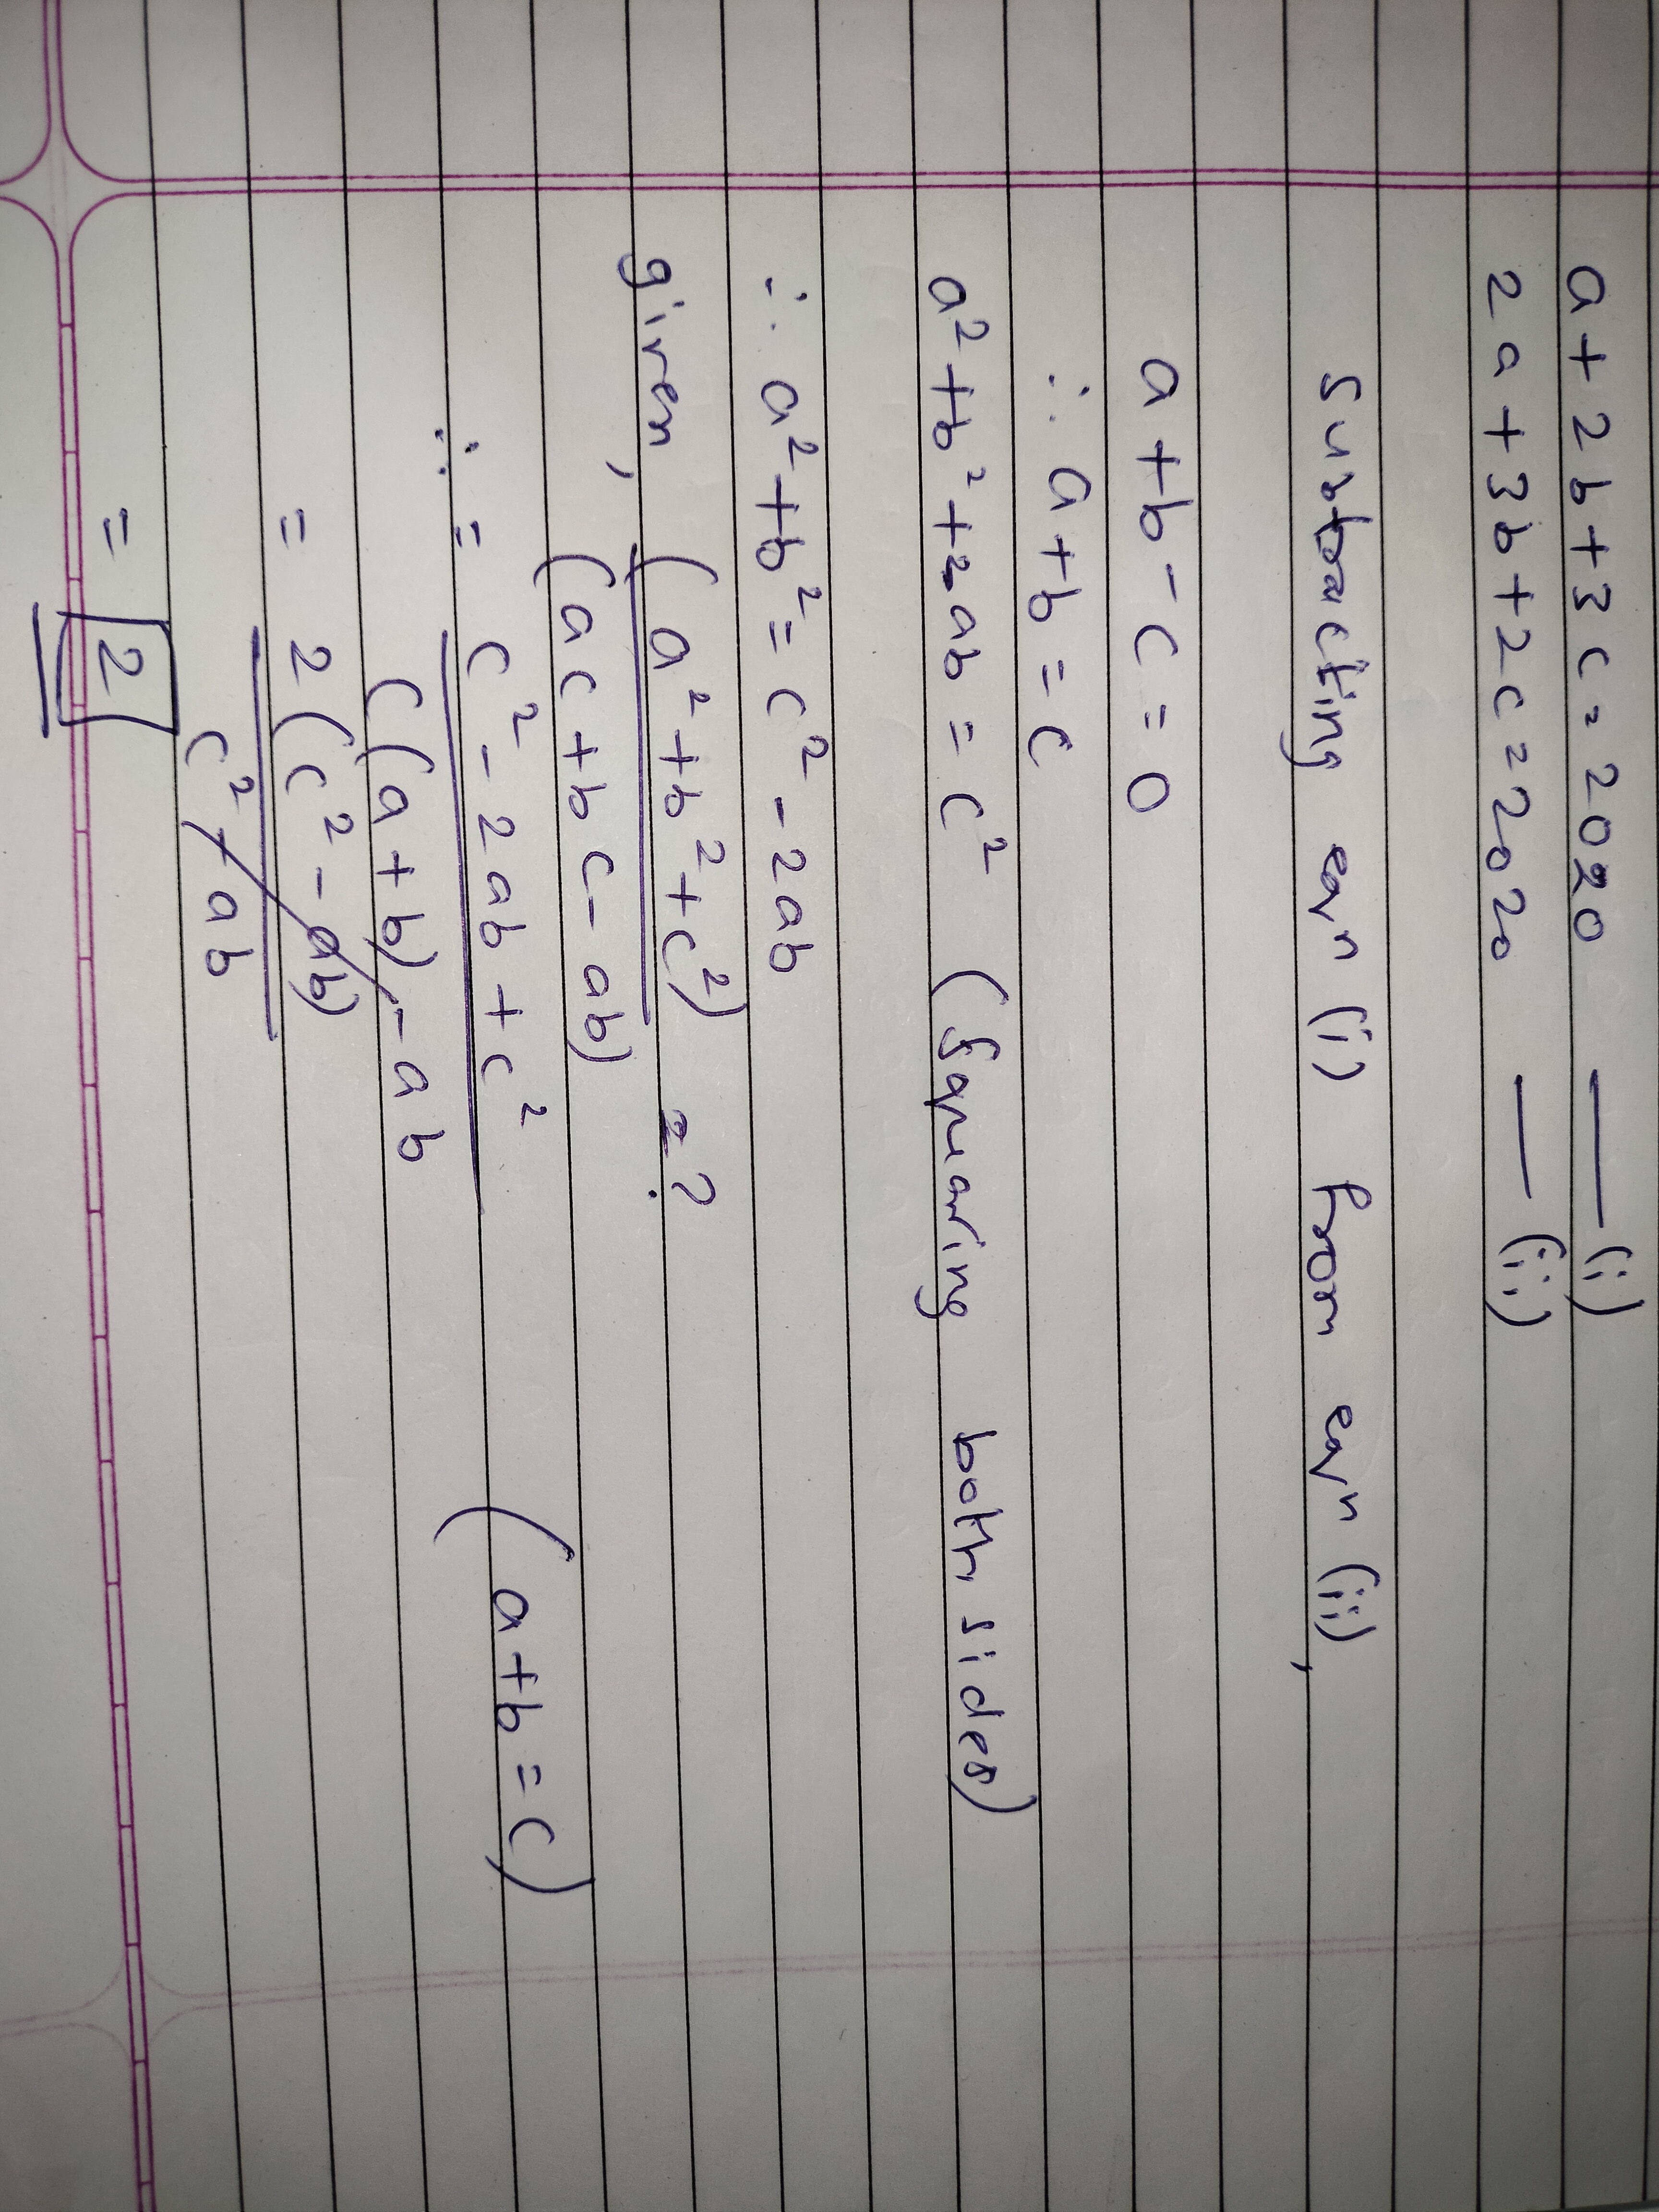 a + 2b + 3c = 2020 — (i)
2a + 3b + 2c = 2020 — (ii)
Subtracting eqn (i) from eqn (ii),
a + b - c = 0
∴ a + b = c
a² + b² + 2ab = c² (Squaring both sides)
∴ a² + b² = c² - 2ab
given, (a² + b² + c²) = ?
(ac + bc - ab)
∴ = c² - 2ab + c² (a + b = c)
c(a + b) - ab
= 2(c² - ab)
c² - ab
= 2